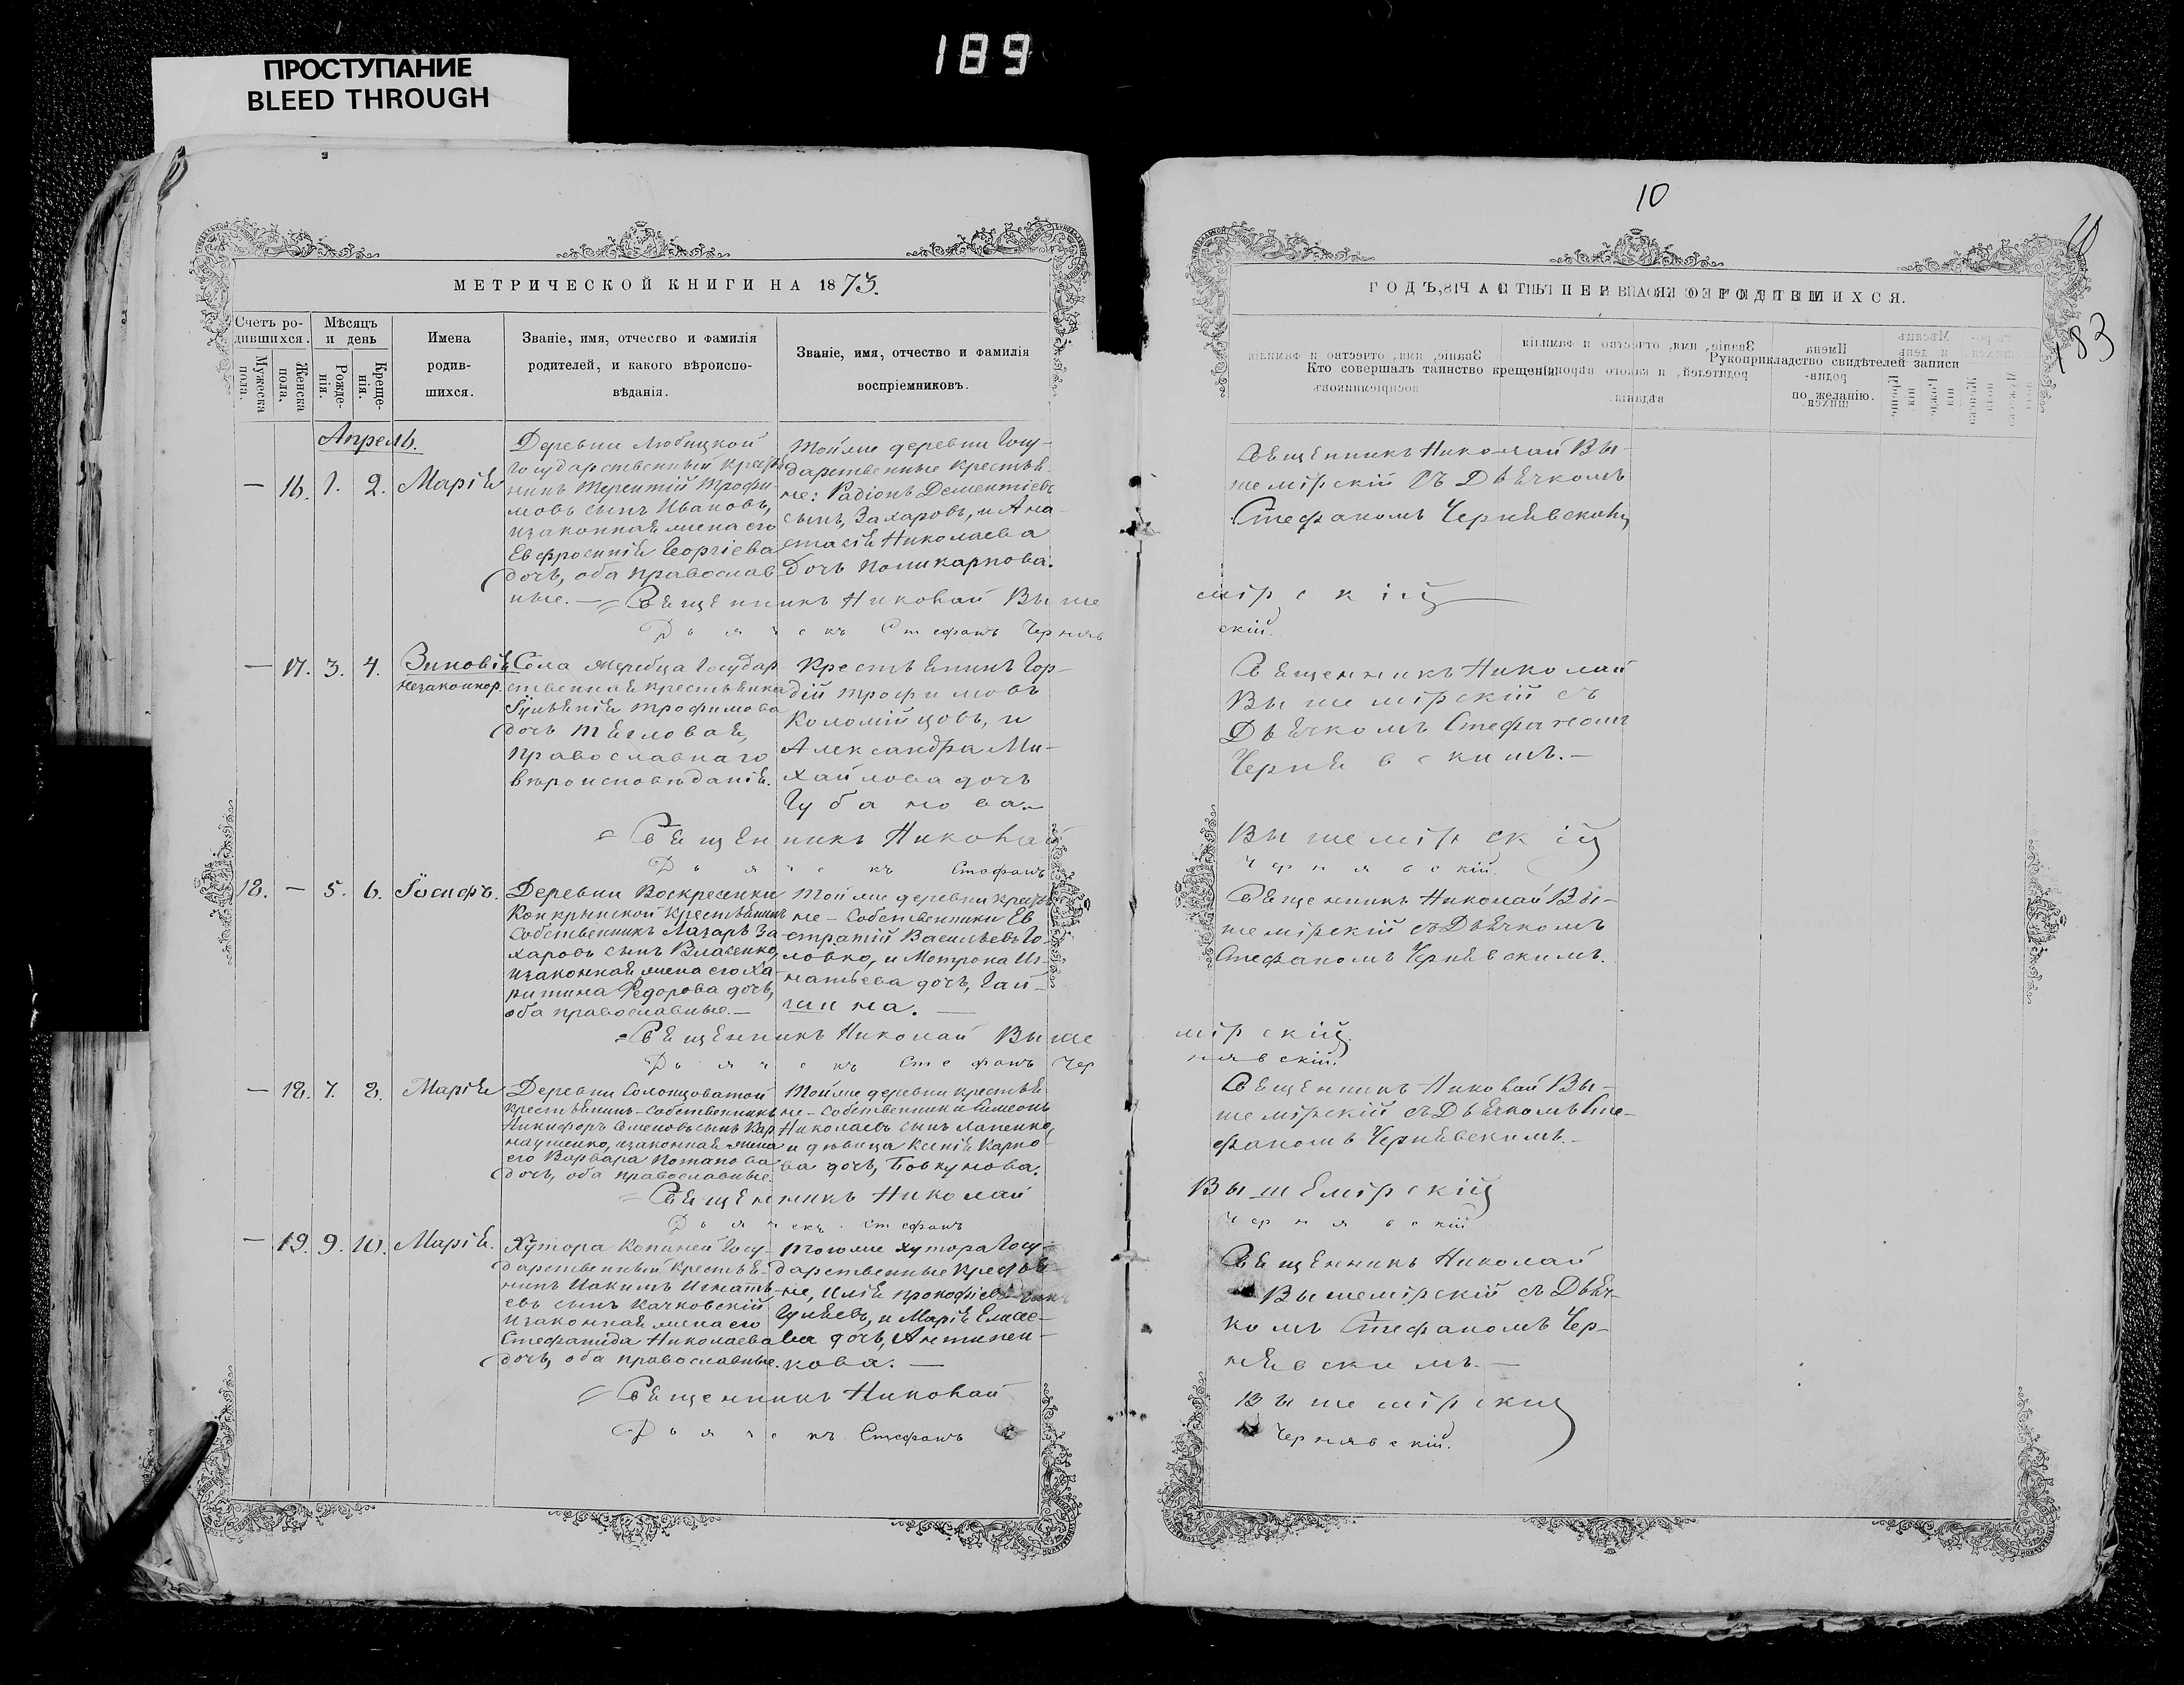 189
ПРОСТУПАНИЕ
BLEED THROUGH
МЕТРИЧЕСКОЙ КНИГИ НА 1873.
Счетъ ро-
дившихся.
Мужеска
пола.
Женска
пола.
Мѣсяцъ
и день
Рожде-
нія.
Креще-
нія.
Имена
родив-
шихся.
Званіе, имя, отчество и фамилія
родителей, и какого вѣроиспо-
вѣданія.
Званіе, имя, отчество и фамилія
воспріемниковъ.
Апрель.
— 16. 1. 2. Марія
Деревни Любицкой
Государственный кресть
нинъ Терентій Трофи-
мовъ сынъ Ивановъ,
изаконная жена его
Евфросинія Георгіева
дочь, оба православ
ные. —
Тойже деревни Госу-
дарственные крестья-
не: Радіонъ Дементіевъ
сынъ, Захаровъ, и Ана-
стасія Николаева
дочь Поликарпова.
Священникъ Николай Выше
Дьячекъ Стефанъ Черняв
— 17. 3. 4. Зиновія
незаконнор.
Села Жеребца Государ-
ственная крестьянка
Іуліянія Трофимова
дочь Тяглова я,
православнаго
вѣроисповѣданія.
Крестьянинъ Гор-
дій Трофимовъ
Коломійцовъ, и
Александра Ми-
хайлова дочь
Губанова.
Священникъ Николай
Дьячекъ Стефанъ
18. — 5. 6. Іосифъ.
Деревни Воскресенки
Конкрынской крестьянинъ
Собственникъ Лазарь За-
харовъ сынъ Власенко,
изаконная жена его Ха-
ритина Федорова дочь,
оба православные. —
Тойже деревни кресть
не-собственники Ев
стратій Васильевъ Го-
ловко, и Мотрона Иг-
натьева дочь, Гай-
шина. —
Священникъ Николай Выше
Дьячекъ Стефанъ Чер
— 18. 7. 8. Марія
Деревни Солонцоватой
крестьянинъ-собственникъ
Никифоръ Семеновъ сынъ Кар
наушенко, изаконная жена
его Варвара Потапова
дочь, оба православные.
Тойже деревни крестья-
не-собственники Симеонъ
Николаевъ сынъ Лапенко,
и дѣвица Ксенія Карпо-
ва дочь, Бовкунова.
Священникъ Николай
Дьячекъ Стефанъ
— 19. 9. 10. Марія.
Хутора Копаней Госу-
дарственный крестья-
нинъ Иакимъ Игнать-
евъ сынъ Качковскій
изаконная жена его
Стефанида Николаева
дочь, оба православные.
Тогоже хутора Госу-
дарственные крестья-
не, Илія Прокофіевъ
и Марія Елисе-
ва дочь, Антипен-
кова. —
Священникъ Николай
Дьячекъ Стефанъ
10
183
ГОДЪ, ЧАСТЬ ПЕРВАЯ О РОДИВШИХСЯ.
Кто совершалъ таинство крещенія.
Рукоприкладство свидѣтелей записи
по желанію.
Священникъ Николай Вы-
шемірскій съ Дьячкомъ
Стефаномъ Чернявскимъ
мірскій
скій.
Священникъ Николай
Вышемірскій съ
Дьячкомъ Стефаномъ
Чернявскимъ. —
Вышемірскій
Чернявскій.
Священникъ Николай Вы-
шемірскій съ Дьячкомъ
Стефаномъ Чернявскимъ.
мірскій
нявскій.
Священникъ Николай Вы-
шемірскій съ Дьячкомъ Сте-
фаномъ Чернявскимъ. —
Вышемірскій
Чернявскій
Священникъ Николай
Вышемірскій съ Дьяч-
комъ Стефаномъ Чер-
нявскимъ. —
Вышемірскій
Чернявскій.